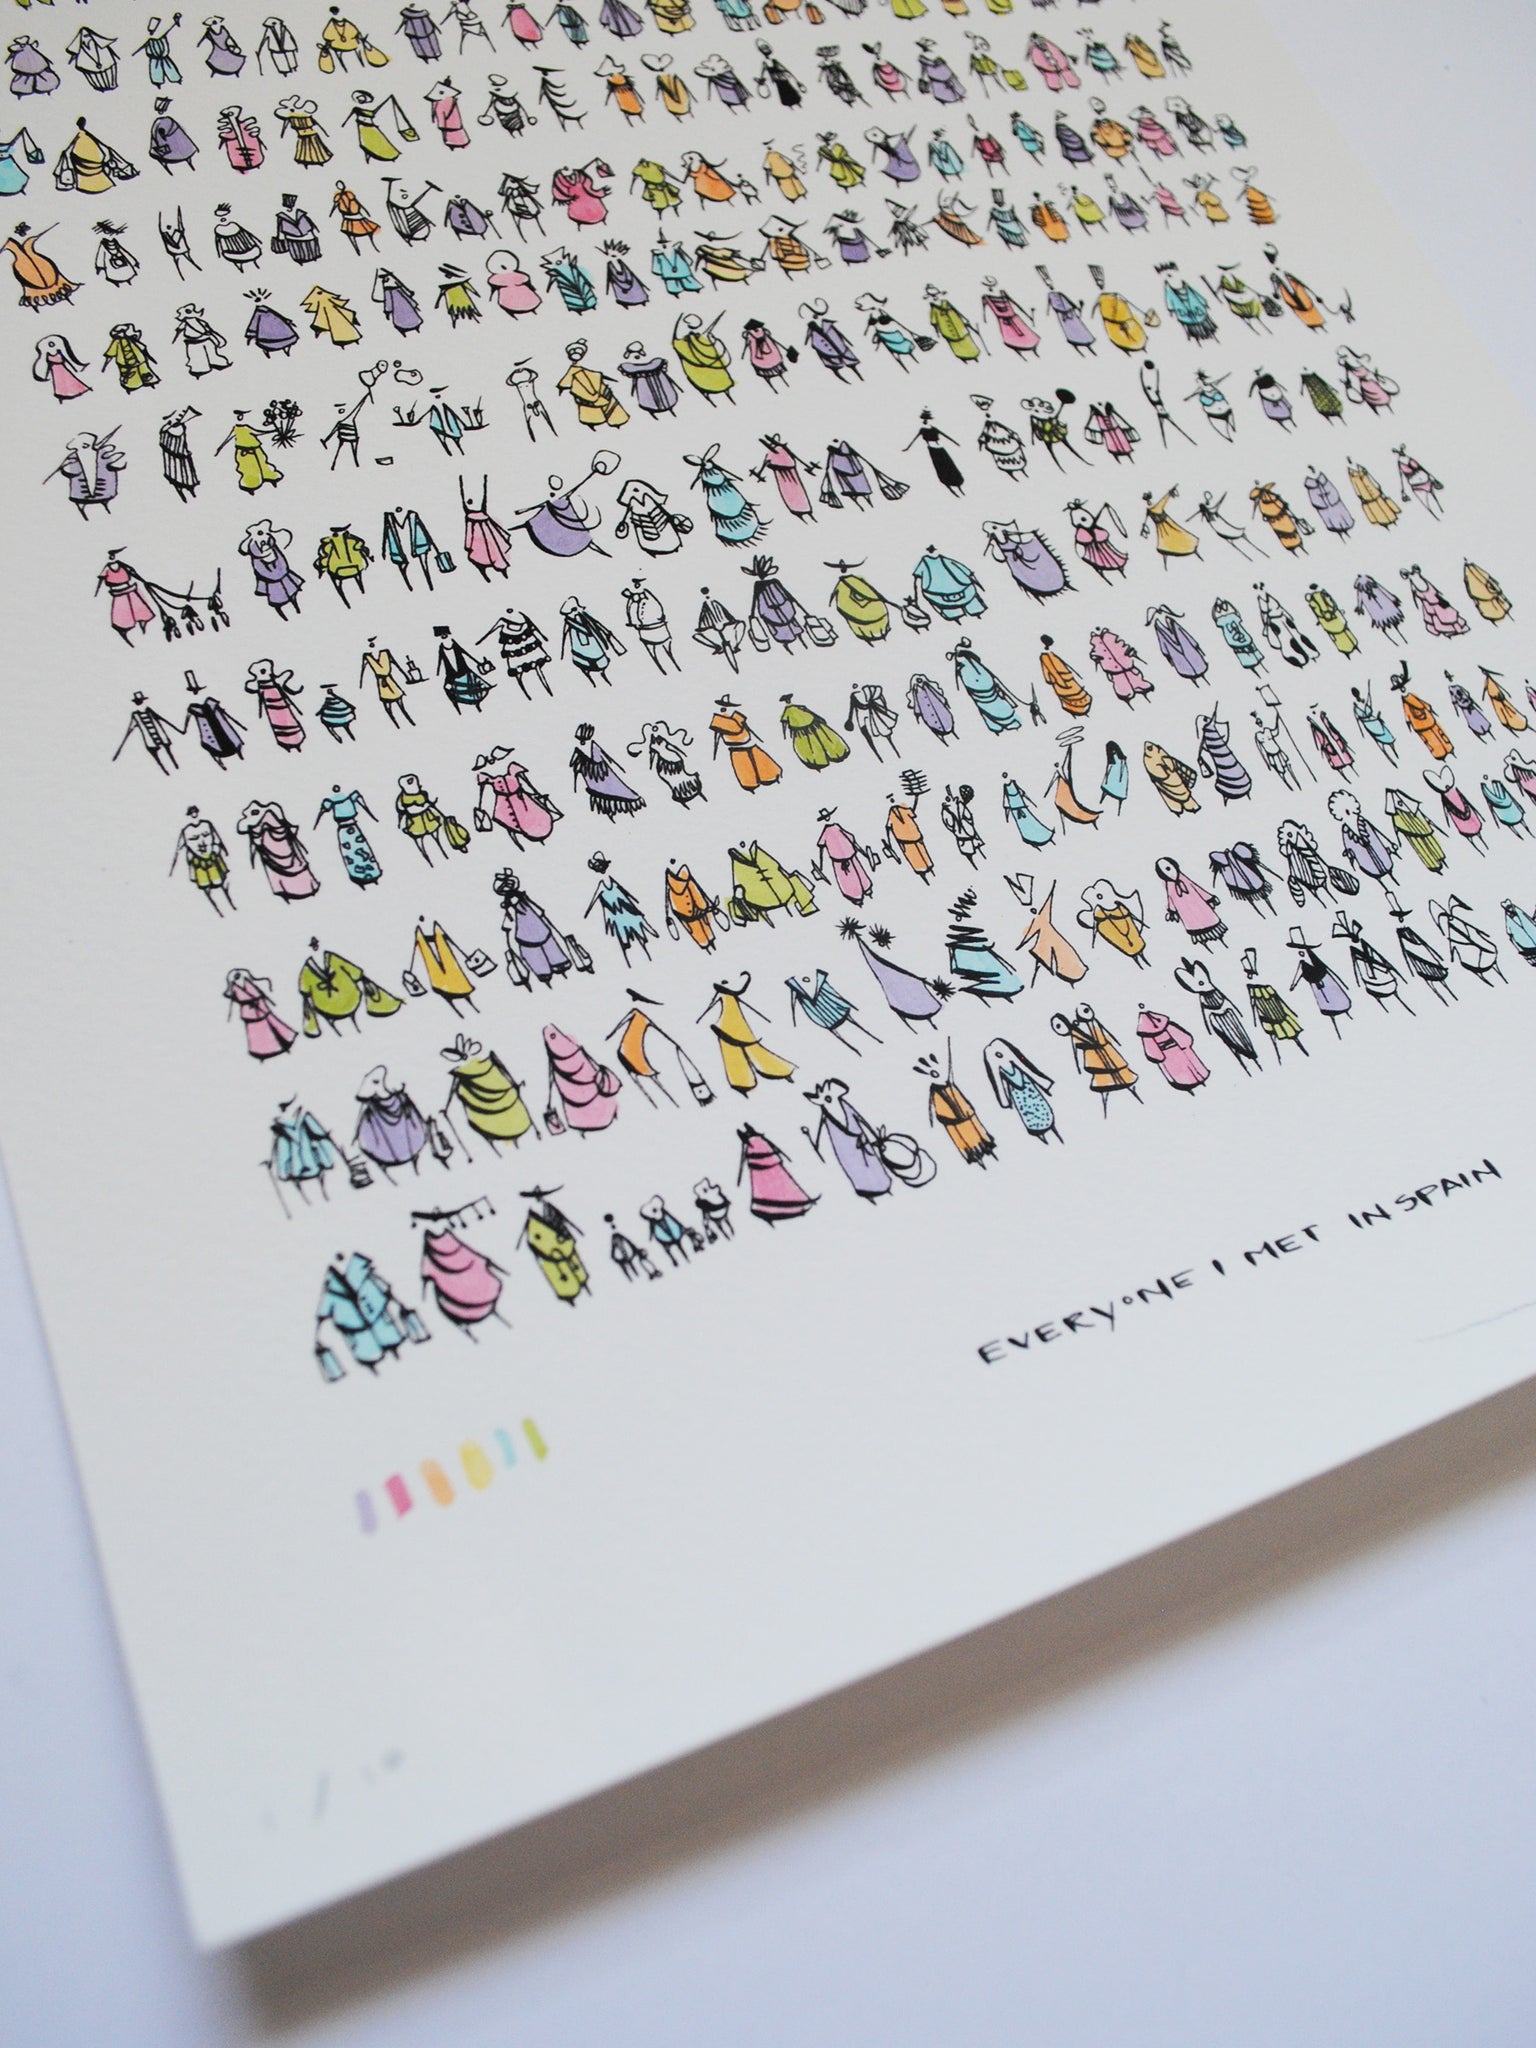 EVERYONE I MET IN SPAIN